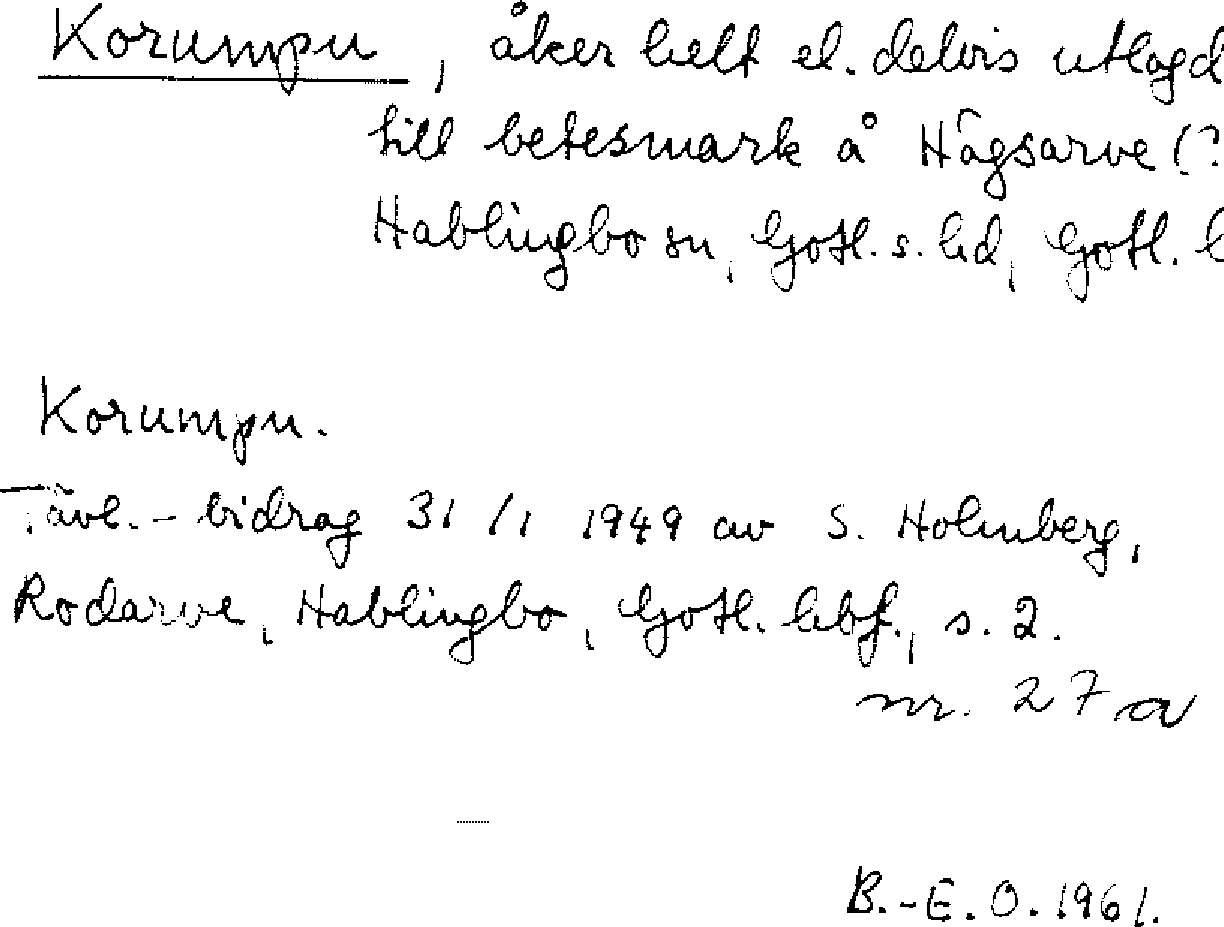 Korumpu, åker helt el. delvis utlagd
till betesmark å Hägsarve (?
Hablingbo sn, Gotl. s. hd, Gotl. l
Korumpu.
Tävl.-bidrag 31/1 1949 av S. Holmberg,
Rodarve, Hablingbo, Gotl. hbf., s. 2.
nr. 27 a
B.-E. O. 1961.